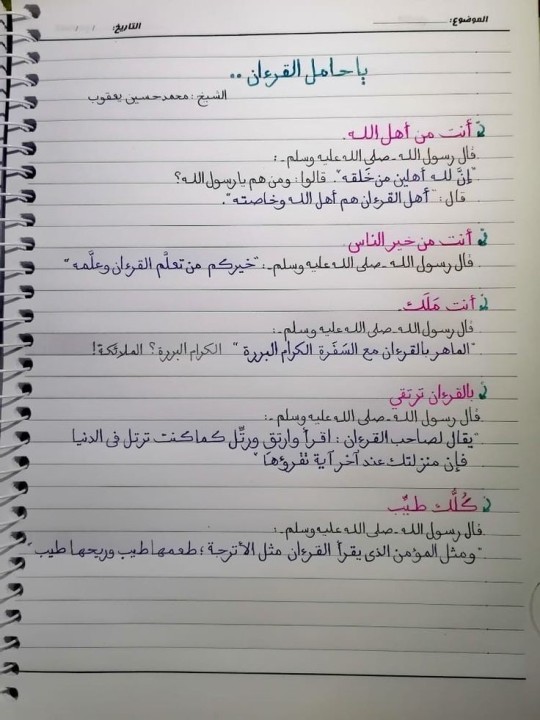 الموضوع: التاريخ: / /
يا حامل القرءان ..
الشيخ : محمد حسين يعقوب
أنت من أهل الله.
قال رسول الله - صلى الله عليه وسلم - :
"إنَّ لله أهلين من خَلقه". قالوا : ومن هم يا رسول الله؟
قال : "أهل القرءان هم أهل الله وخاصته".
أنت من خير الناس
قال رسول الله - صلى الله عليه وسلم - : "خيركم من تعلَّم القرءان وعلَّمه"
أنت مَلَك.
قال رسول الله - صلى الله عليه وسلم - :
"الماهر بالقرءان مع السَفَرة الكرام البررة" الكرام البررة؟ الملائكة!
بالقرءان ترتقي
قال رسول الله - صلى الله عليه وسلم - :
"يقال لصاحب القرءان : اقرأ وارتق ورتِّل كما كنت ترتل فى الدنيا
فإن منزلتك عند آخر آية تقرؤها"
كُلُّك طيِّب
قال رسول الله - صلى الله عليه وسلم - :
"ومثل المؤمن الذى يقرأ القرءان مثل الأترجة ؛ طعمها طيب وريحها طيب"